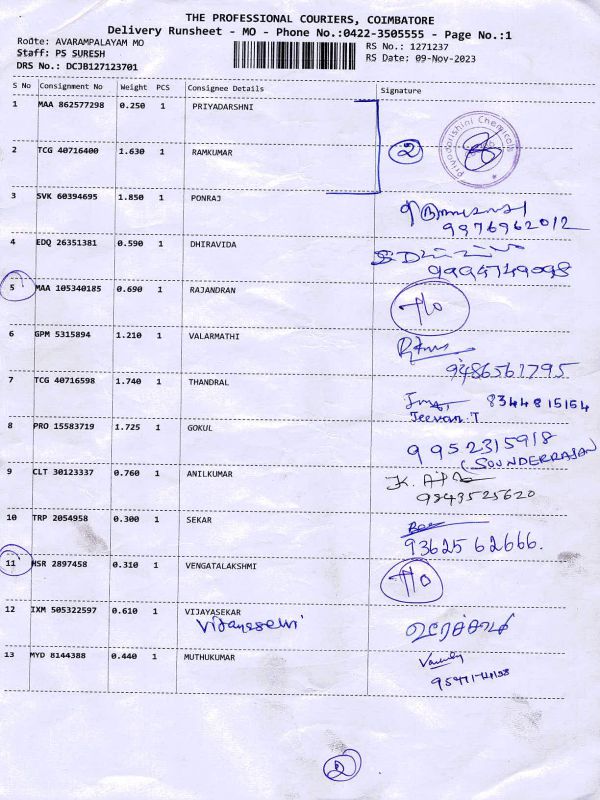 THE PROFESSIONAL COURIERS, COIMBATORE
Delivery Runsheet - MO - Phone No.:0422-3505555 - Page No.:1
Route: AVARAMPALAYAM MO
Staff: PS SURESH
DRS No.: DCJB127123701
RS No.: 1271237
RS Date: 09-Nov-2023
S No Consignment No Weight PCS Consignee Details Signature
1 MAA 862577298 0.250 1 PRIYADARSHNI
Priyadarshini Chemicals
2
2 TCG 40716400 1.630 1 RAMKUMAR
3 SVK 60394695 1.850 1 PONRAJ
9976962012
4 EDQ 26351381 0.590 1 DHIRAVIDA
5 MAA 105340185 0.690 1 RAJANDRAN
6 GPM 5315894 1.210 1 VALARMATHI
9486561795
7 TCG 40716598 1.740 1 THANDRAL
8344815154
Jeevan.T
8 PRO 15583719 1.725 1 GOKUL
9952315918
(SOUNDERRAJAN)
9 CLT 30123337 0.760 1 ANILKUMAR
9843525620
10 TRP 2054958 0.300 1 SEKAR
9362562666.
11 HSR 2897458 0.310 1 VENGATALAKSHMI
12 IXM 505322597 0.610 1 VIJAYASEKAR
13 MYD 8144388 0.440 1 MUTHUKUMAR
2